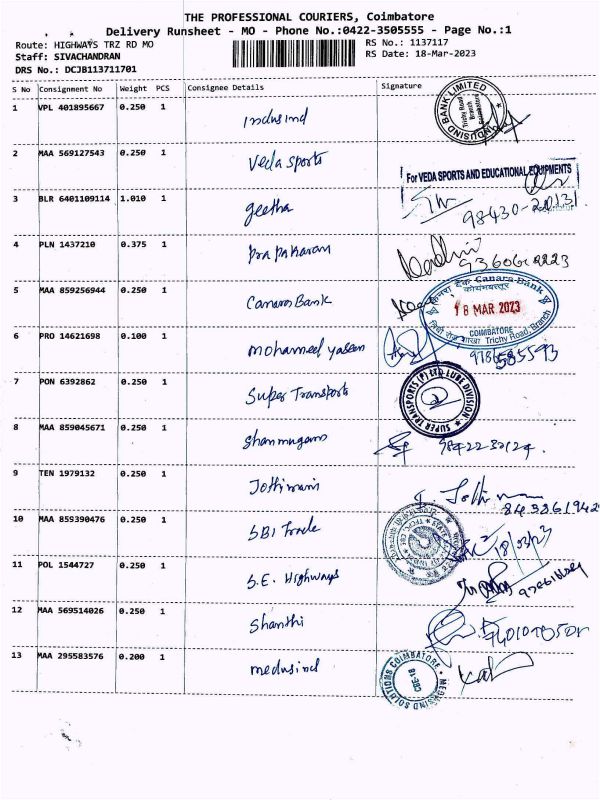 THE PROFESSIONAL COURIERS, Coimbatore
Delivery Runsheet - MO - Phone No.:0422-3505555 - Page No.:1
Route: HIGHWAYS TRZ RD MO
RS No.: 1137117
Staff: SIVACHANDRAN
RS Date: 18-Mar-2023
DRS No.: DCJB113711701
S No Consignment No Weight PCS Consignee Details Signature
1 VPL 401895667 0.250 1 Indusind
INDUSIND BANK LIMITED
Trichy Road
Branch
Coimbatore
2 MAA 569127543 0.250 1 Veda sports
For VEDA SPORTS AND EDUCATIONAL EQUIPMENTS
3 BLR 6401109114 1.010 1 geetha
98430-20131
4 PLN 1437210 0.375 1 Prapakaran
5 MAA 859256944 0.250 1 Canara Bank
केनरा बैंक Canara Bank
18 MAR 2023
COIMBATORE
Trichy Road, Branch
6 PRO 14621698 0.100 1 mohamed yaseen
7 PON 6392862 0.250 1 Super Transports
SUPER TRANSPORTS (P) LTD LUBE DIVISION
8 MAA 859045671 0.250 1 Shanmugam
9 TEN 1979132 0.250 1 Jothimani
10 MAA 859390476 0.250 1 SBI Trade
18/03/23
11 POL 1544727 0.250 1 S.E. Highways
12 MAA 569514026 0.250 1 Shanthi
13 MAA 295583576 0.200 1 medusind
MEDUSIND SOLUTIONS COIMBATORE
CBE-18